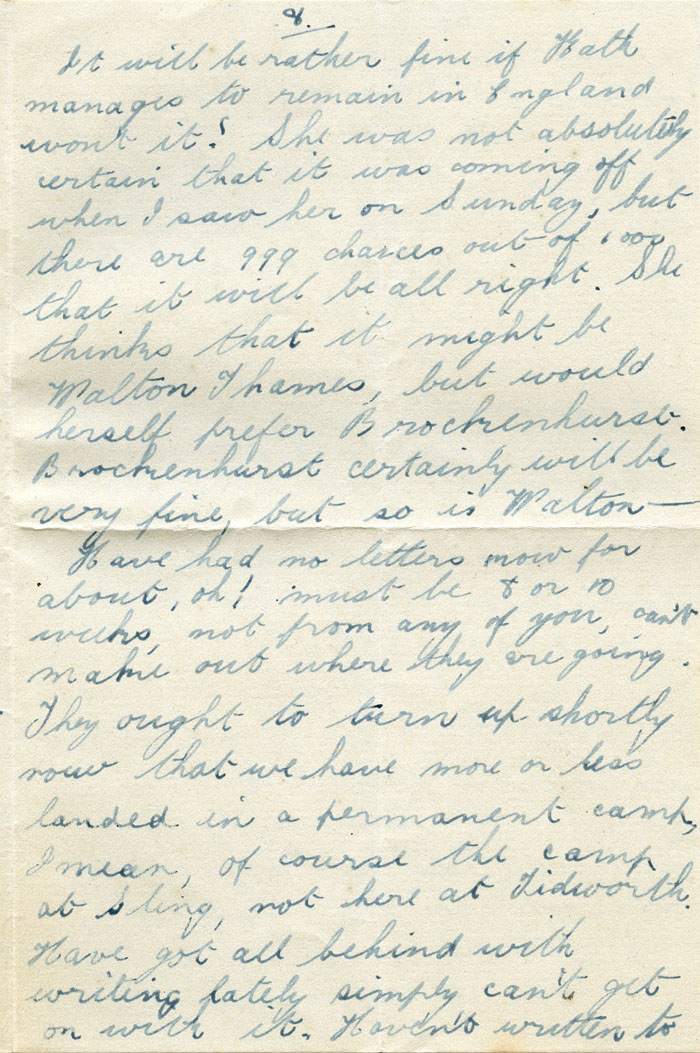 8.
It will be rather fine if Kath
manages to remain in England
wont it! She was not absolutely
certain that it was coming off
when I saw her on Sunday, but
there are 999 chances out of 1000
that it will be all right. She
thinks that it might be
Walton Thames, but would
herself prefer Brockenhurst.
Brockenhurst certainly will be
very fine, but so is Walton—
Have had no letters now for
about, oh! must be 8 or 10
weeks, not from any of you, can't
make out where they are going.
They ought to turn up shortly
now that we have more or less
landed in a permanent camp,
I mean, of course the camp
at Sling, not here at Tidworth.
Have got all behind with
writing lately simply can't get
on with it. Haven't written to